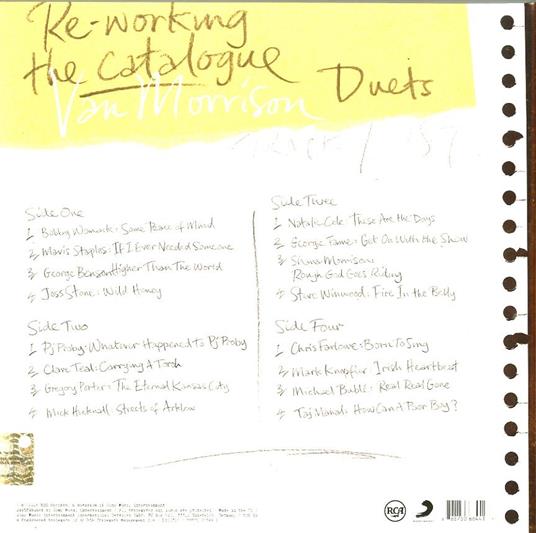 Re-working
the Catalogue
Van Morrison
Duets
Side One
1 Bobby Womack: Some Peace of Mind
2 Mavis Staples: If I Ever Needed Someone
3 George Benson: Higher Than The World
4 Joss Stone: Wild Honey
Side Two
1 Pj Proby: Whatever Happened to Pj Proby
2 Clare Teal: Carrying A Torch
3 Gregory Porter: The Eternal Kansas City
4 Mick Hucknall: Streets of Arklow
Side Three
1 Natalie Cole: These Are the Days
2 George Fame: Get On With the Show
3 Shana Morrison:
Rough God Goes Riding
4 Steve Winwood: Fire In the Belly
Side Four
1 Chris Farlowe: Born To Sing
2 Mark Knopfler Irish Heartbeat
3 Michael Bublé: Real Real Gone
4 Taj Mahal: How Can A Poor Boy?
RCA